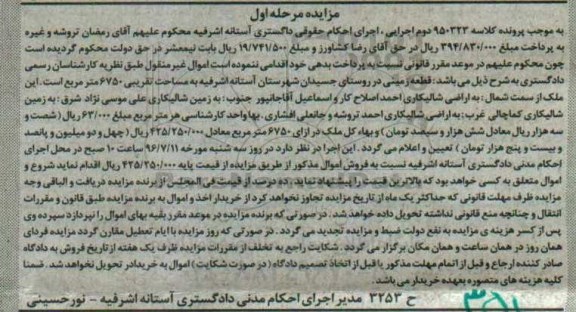 مزایده مرحله اول
به موجب پرونده کلاسه ۹۵۰۳۲۳ دوم اجرایی ، اجرای احکام حقوقی دادگستری آستانه اشرفیه محکوم علیهم آقای رمضان تروشه و غیره
به پرداخت مبلغ ۳۹۴/۸۳۰/۰۰۰ ریال در حق آقای رضا کشاورز و مبلغ ۱۹/۷۴۱/۵۰۰ ریال بابت نیمعشر در حق دولت محکوم گردیده است
چون محکوم علیهم در موعد مقرر قانونی نسبت به پرداخت بدهی خود اقدامی ننموده است اموال غیرمنقول طبق نظریه کارشناسان رسمی
دادگستری به شرح ذیل می باشد: قطعه زمینی در روستای جسیدان شهرستان آستانه اشرفیه به مساحت تقریبی ۶۷۵۰ متر مربع است. این
ملک از سمت شمال : به اراضی شالیکاری احمد اصلاح کار و اسماعیل آقاجانپور جنوب : به زمین شالیکاری علی موسی نژاد شرق : به زمین
شالیکاری کماچالی غرب : به اراضی شالیکاری احمد تروشه و جانعلی افشاری . بها واحد کارشناسی هر متر مربع مبلغ ۶۳/۰۰۰ ریال (شصت و
سه هزار ریال معادل شش هزار و سیصد تومان ) و بهاء کل ملک در ازای ۶۷۵۰ متر مربع معادل ۴۲۵/۲۵۰/۰۰۰ ریال (چهل و دو میلیون و پانصد
و بیست و پنج هزار تومان ) تعیین و اعلام می گردد . این اجرا در نظر دارد در روز سه شنبه مورخه ۹۶/۷/۱۱ ساعت ۱۰ صبح در محل اجرای
احکام مدنی دادگستری آستانه اشرفیه نسبت به فروش اموال مذکور از طریق مزایده از قیمت پایه ۴۲۵/۲۵۰/۰۰۰ ریال اقدام نماید شروع و
اموال متعلق به کسی خواهد بود که بالاترین قیمت را پیشنهاد نماید . ده درصد از قیمت فی المجلس از برنده مزایده دریافت و الباقی وجه
مزایده ظرف مهلت قانونی که حداکثر یک ماه از تاریخ مزایده تجاوز نخواهد کرد از خریدار اخذ و اموال به برنده مزایده طبق قانون و مقررات
انتقال و چنانچه منع قانونی نداشته تحویل داده خواهد شد . در صورتی که برنده مزایده در موعد مقرر بقیه بهای اموال را نپردازد سپرده وی
پس از کسر هزینه ی مزایده به نفع دولت ضبط و مزایده تجدید می گردد . در صورتی که روز مزایده با ایام تعطیل مقارن گردد مزایده فردای
همان روز در همان ساعت و همان مکان برگزار می گردد . شکایت راجع به تخلف از مقررات مزایده ظرف یک هفته از تاریخ فروش به دادگاه
صادر کننده ارجاع و قبل از اتمام مهلت مذکور یا قبل از اتخاذ تصمیم دادگاه ( در صورت شکایت ) اموال به خریدار تحویل نخواهد شد . ضمنا
کلیه هزینه های متصوره بعهده خریدار می باشد .
ح ۳۲۵۳ مدیر اجرای احکام مدنی دادگستری آستانه اشرفیه – نورحسینی